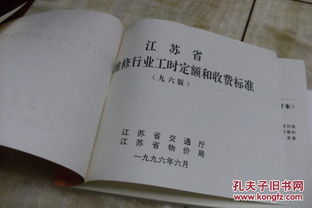 江苏省
修行业工时定额和收费标准
（九六版）
江苏省交通厅
江苏省物价局
一九九六年六月
本）
孔夫子旧书网